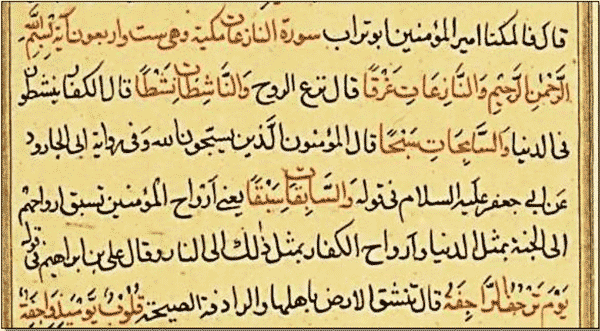 قال فالمكنا امير المؤمنين ابو تراب سورة النازعات مكية وهي ست واربعون آية بِسْمِ اللهِ
الرَّحْمٰنِ الرَّحِيمِ وَالنَّازِعَاتِ غَرْقًا قال نزع الروح وَالنَّاشِطَاتِ نَشْطًا قال الكفار ينشطون
في الدنيا وَالسَّابِحَاتِ سَبْحًا قال المؤمنون الَّذين يسبّحون الله وفي رواية ابى الجارود
عَن ابي جعفر عليه السلام في قوله وَالسَّابِقَاتِ سَبْقًا يعني أرْوَاح المُؤمنين تسبق ارواحهم
الى الجنة بمثل الدنيا وَأرواح الكفار بمثل ذٰلك الى النار وقال على بن ابراهيم فى قوله
يَوْمَ تَرْجُفُ الرَّاجِفَةُ قال تنشق الارض باهلها والرادفة الصيحة قُلُوبٌ يَوْمَئِذٍ وَاجِفَةٌ